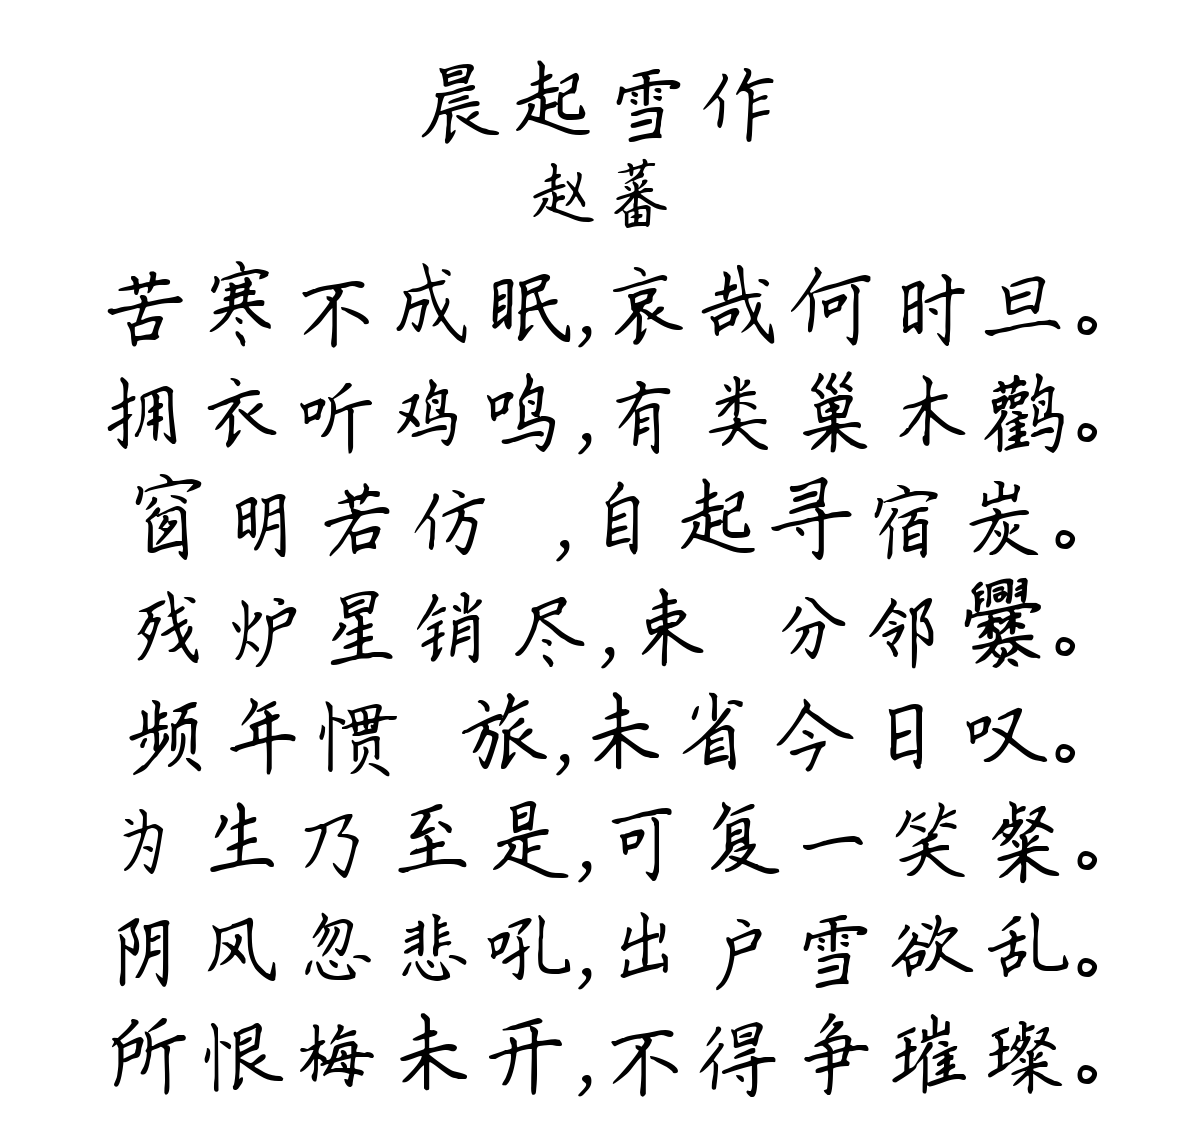 晨起雪作
赵蕃
苦寒不成眠,哀哉何时旦。
拥衣听鸡鸣,有类巢木鹳。
窗明若仿 ,自起寻宿炭。
残炉星销尽,束 分邻爨。
频年惯 旅,未省今日叹。
为生乃至是,可复一笑粲。
阴风忽悲吼,出户雪欲乱。
所恨梅未开,不得争璀璨。